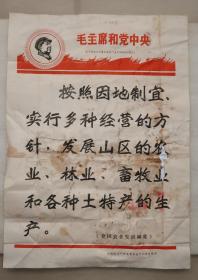 毛主席和党中央
按照因地制宜、
实行多种经营的方
针，发展山区的农
业、林业、畜牧业
和各种土特产的生
产。